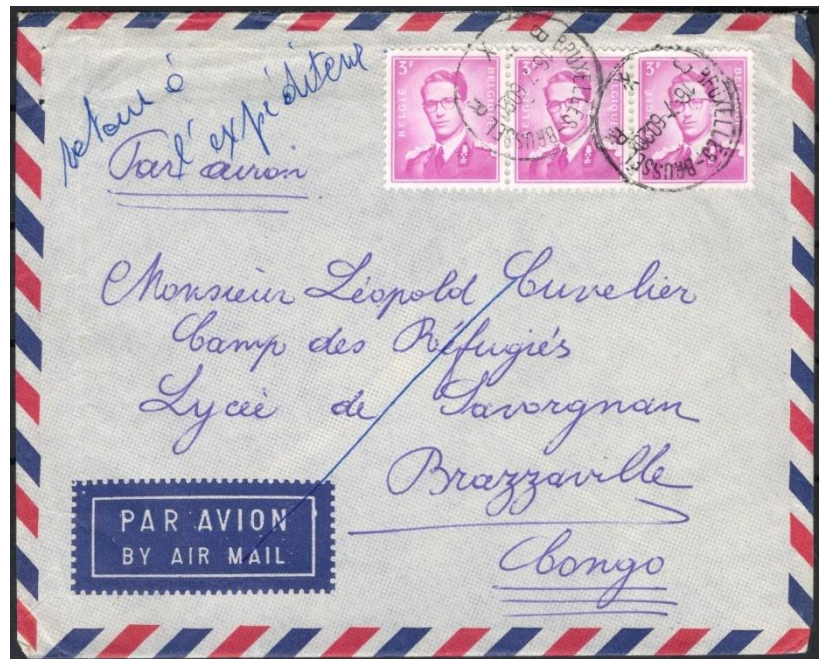 retour à
l'expéditeur
Par avion
3F BELGIE BELGIQUE
3F BELGIE BELGIQUE
3F BELGIE BELGIQUE
BRUXELLES-BRUSSEL
BRUXELLES-BRUSSEL
Monsieur Léopold Cuvelier
Camp des Réfugiés
Lycée de Savorgnan
Brazzaville
Congo
PAR AVION
BY AIR MAIL